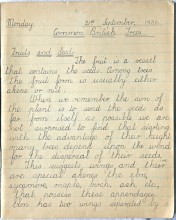 Monday. 21st September, 1936.
Common British Trees
Fruits and Seeds
The fruit is a vessel
that contains the seeds. Among trees
the fruit form is usually either
akene or nut.
When we remember the aim of
the plant is to send the seeds as
far from itself as possible we are
not surprised to find that working
with the advantage of their height
many trees depend upon the wind
for the dispersal of their seeds.
This suggests wings and there
are special akenes the elm,
sycamore, maple, birch, ash etc,
that possess these appendages.
Elm has two wings, opposite by